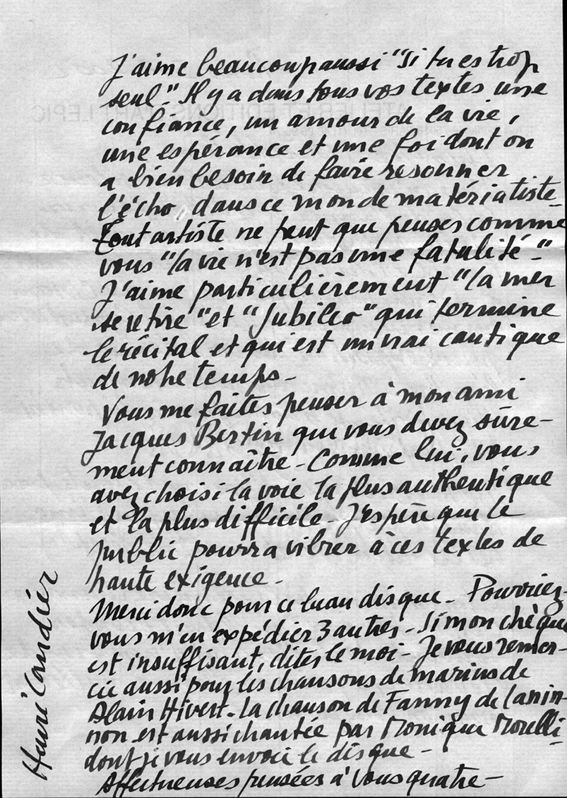 J'aime beaucoup aussi "Si tu es trop
seul". Il y a dans tous vos textes une
confiance, un amour de la vie,
une espérance et une foi dont on
a bien besoin de faire résonner
l'écho, dans ce monde matérialiste.
Tout artiste ne peut que penser comme
vous "la vie n'est pas une fatalité".
J'aime particulièrement "La mer
se retire" et "Jubileo" qui termine
le récital et qui est un vrai cantique
de notre temps -
Vous me faites penser à mon ami
Jacques Bertin que vous devez sûre-
ment connaître - Comme lui, vous
avez choisi la voie la plus authentique
et la plus difficile - J'espère que le
public pourra vibrer à ces textes de
haute exigence -
Merci donc pour ce beau disque - Pourriez-
vous m'en expédier 3 autres - Si mon chèque
est insuffisant, dites le moi - Je vous remer-
cie aussi pour les chansons de marins de
Alain Hivert - La chanson de Fanny de Lanin-
non est aussi chantée par Monique Morelli
dont je vous envoie le disque -
Affectueuses pensées à vous quatre -
Henri Landier
ATELIER ET EDITIONS D'ART LEPIC